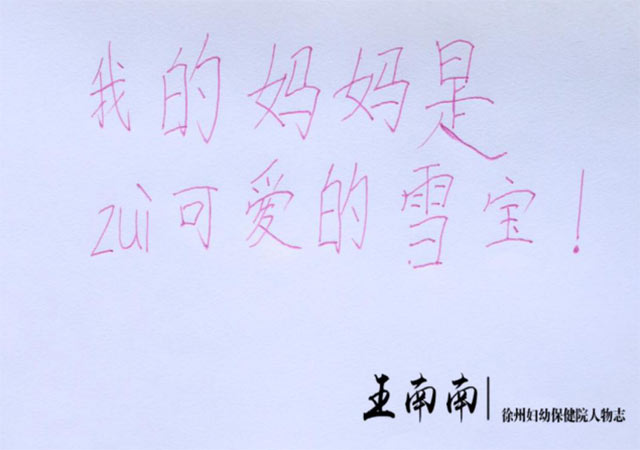 我的妈妈是
zuì可爱的雪宝！
王南南 徐州妇幼保健院人物志